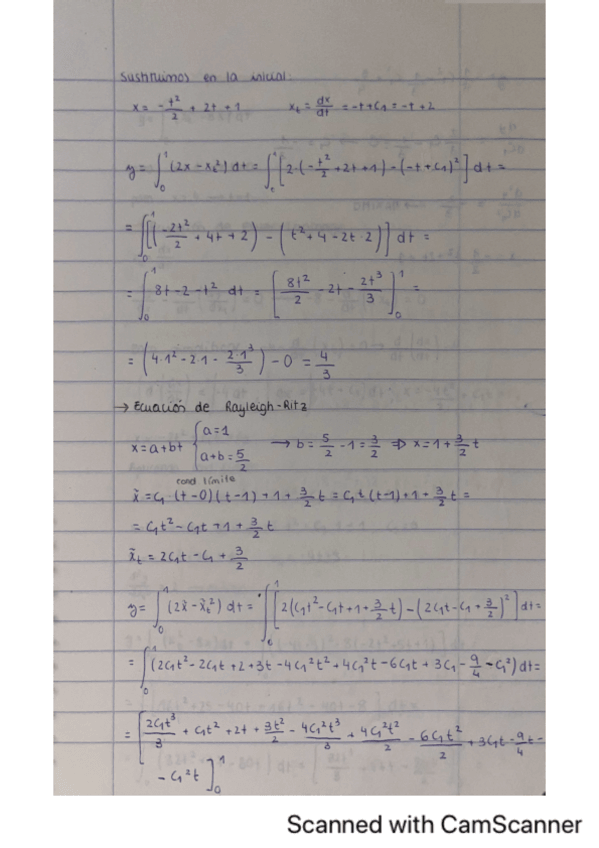 Sustituimos en la inicial:
x = -t²/2 + 2t + 1    x_t = dx/dt = -t + C₁ = -t + 2
y = ∫₀¹ (2x - x_t²) dt = ∫₀¹ [2·(-t²/2 + 2t + 1) - (-t + C₁)²] dt =
= ∫₀¹ [(-2t²/2 + 4t + 2) - (t² + 4 - 2t·2)] dt =
= ∫₀¹ 8t - 2 - t² dt = [8t²/2 - 2t - 2t³/3]₀¹ =
= (4·1² - 2·1 - 2·1³/3) - 0 = 4/3
→ Ecuación de Rayleigh-Ritz
x = a + bt { a = 1    a + b = 5/2    → b = 5/2 - 1 = 3/2 ⇒ x = 1 + 3/2 t
cond límite
x̃ = C₁·(t - 0)(t - 1) + 1 + 3/2 t = C₁t(t - 1) + 1 + 3/2 t =
= C₁t² - C₁t + 1 + 3/2 t
x̃_t = 2C₁t - C₁ + 3/2
y = ∫₀¹ (2x̃ - x̃_t²) dt = ∫₀¹ [2(C₁t² - C₁t + 1 + 3/2 t) - (2C₁t - C₁ + 3/2)²] dt =
= ∫₀¹ (2C₁t² - 2C₁t + 2 + 3t - 4C₁²t² + 4C₁²t - 6C₁t + 3C₁ - 9/4 - C₁²) dt =
= [2C₁t³/3 + C₁t² + 2t + 3t²/2 - 4C₁²t³/3 + 4C₁²t²/2 - 6C₁t²/2 + 3C₁t - 9/4 t -
- C₁²t]₀¹
Scanned with CamScanner